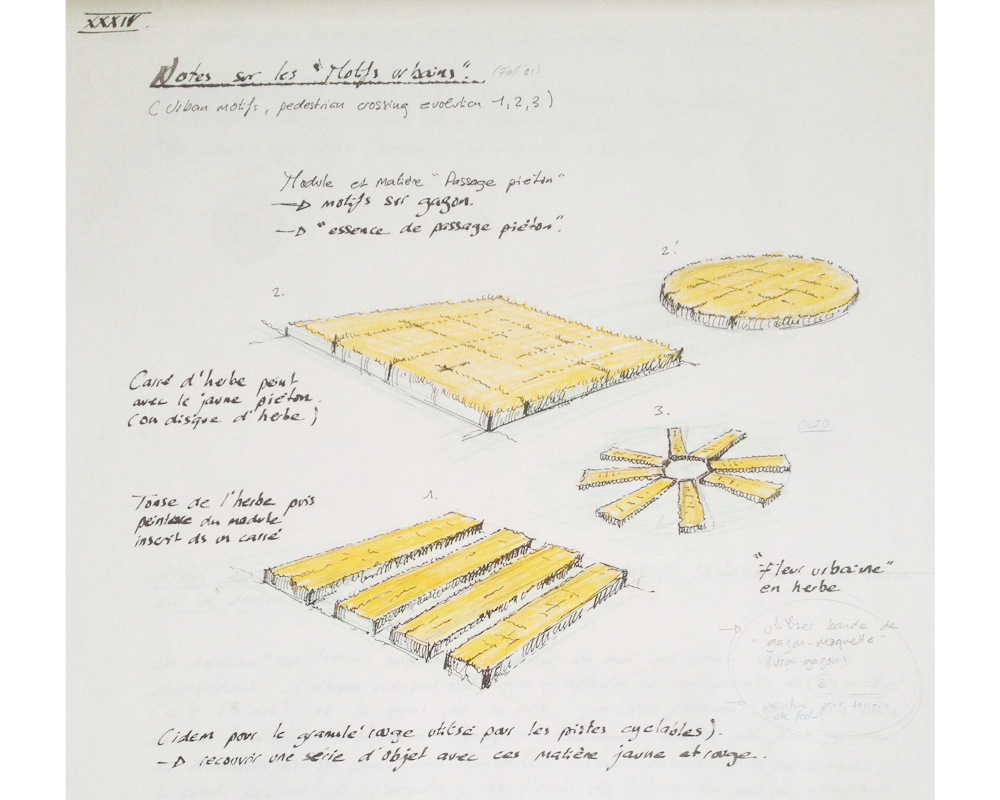 XXXIV.
Notes sur les "Motifs urbains".
(Urban motifs, pedestrian crossing evolution 1, 2, 3)
Module et matière "Passage piéton"
→ motifs sur gazon.
→ "essence de passage piéton".
2'.
2.
Carré d'herbe peint
avec le jaune piéton.
(ou disque d'herbe)
3.
1.
Tonse de l'herbe puis
peinture du module
inscrit ds un carré
"fleur urbaine"
en herbe
→ utiliser bande de
"gazon-maquette"
gazon)
→ peinture pour terrain
de foot
(idem pour le granulé rouge utilisé par les pistes cyclables).
→ recouvrir une série d'objet avec ces matière jaune et rouge.